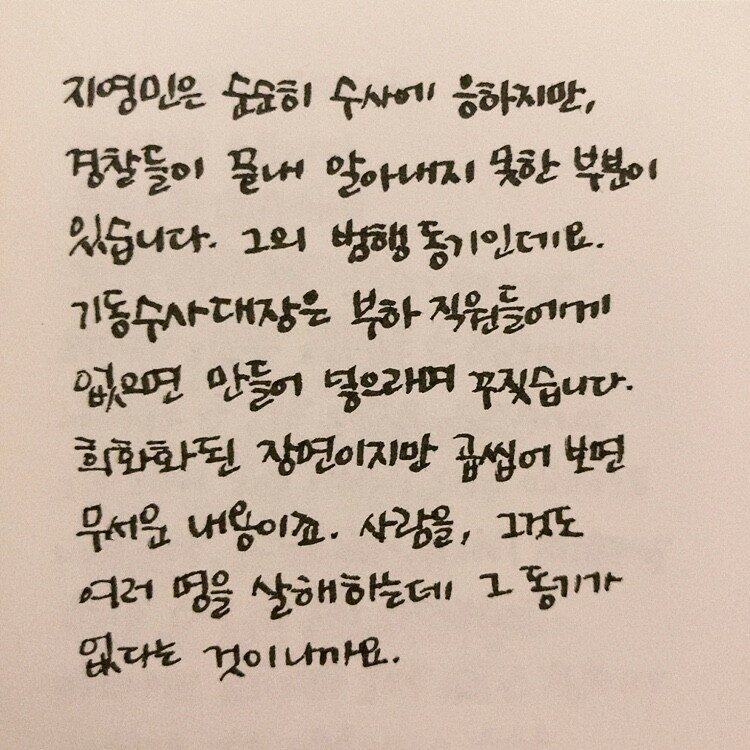 지영민은 순순히 수사에 응하지만,
경찰들이 끝내 알아내지 못한 부분이
있습니다. 그의 범행 동기인데요.
기동수사대장은 부하 직원들에게
없으면 만들어 넣으래며 꾸짖습니다.
희화화된 장면이지만 곱씹어 보면
무서운 내용이죠. 사람을, 그것도
여러 명을 살해하는데 그 동기가
없다는 것이니까요.